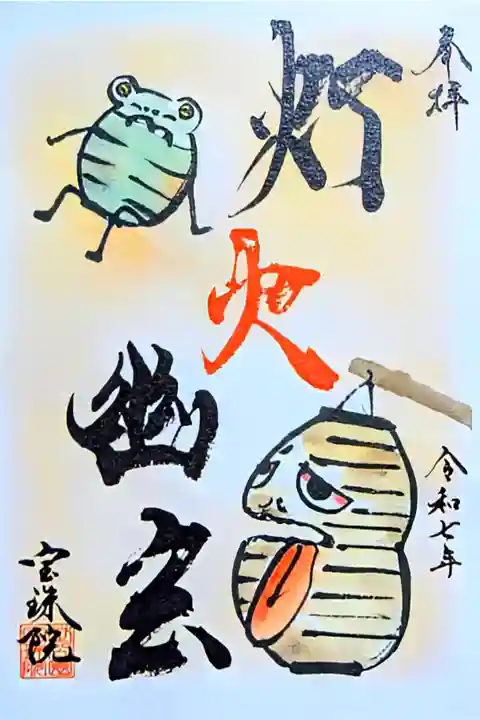 奉拝
灯
火
幽
玄
令和七年
宝珠院